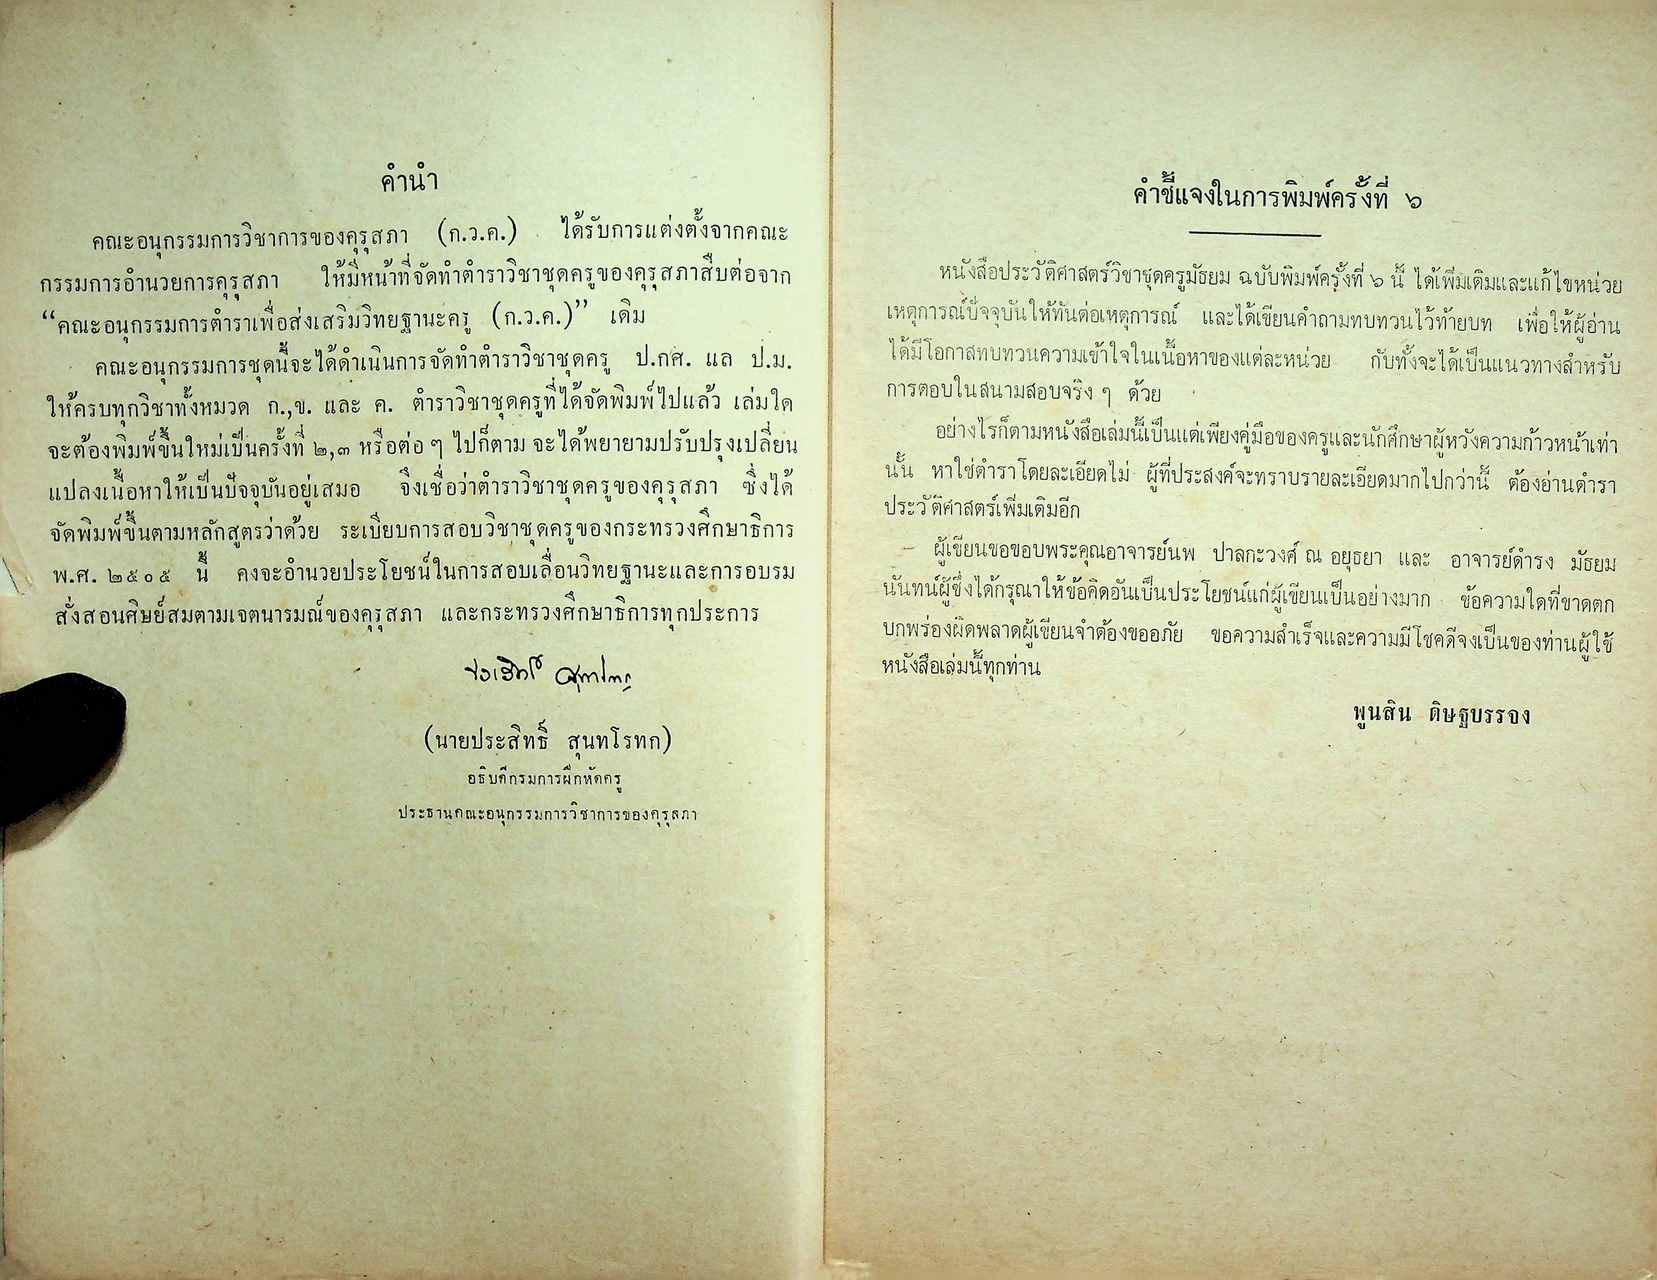 คำนำ
คณะอนุกรรมการวิชาการของคุรุสภา (ก.ว.ค.) ได้รับการแต่งตั้งจากคณะ
กรรมการอำนวยการคุรุสภา ให้มีหน้าที่จัดทำตำราวิชาชุดครูของคุรุสภาสืบต่อจาก
“คณะอนุกรรมการตำราเพื่อส่งเสริมวิทยฐานะครู (ก.ว.ค.)” เดิม
คณะอนุกรรมการชุดนี้จะได้ดำเนินการจัดทำตำราวิชาชุดครู ป.กศ. แล ป.ม.
ให้ครบทุกวิชาทั้งหมวด ก.,ข. และ ค. ตำราวิชาชุดครูที่ได้จัดพิมพ์ไปแล้ว เล่มใด
จะต้องพิมพ์ขึ้นใหม่เป็นครั้งที่ ๒,๓ หรือต่อ ๆ ไปก็ตาม จะได้พยายามปรับปรุงเปลี่ยน
แปลงเนื้อหาให้เป็นปัจจุบันอยู่เสมอ จึงเชื่อว่าตำราวิชาชุดครูของคุรุสภา ซึ่งได้
จัดพิมพ์ขึ้นตามหลักสูตรว่าด้วย ระเบียบการสอบวิชาชุดครูของกระทรวงศึกษาธิการ
พ.ศ. ๒๕๐๕ นี้ คงจะอำนวยประโยชน์ในการสอบเลื่อนวิทยฐานะและการอบรม
สั่งสอนศิษย์สมตามเจตนารมณ์ของคุรุสภา และกระทรวงศึกษาธิการทุกประการ
(นายประสิทธิ์ สุนทโรทก)
อธิบดีกรมการฝึกหัดครู
ประธานคณะอนุกรรมการวิชาการของคุรุสภา
คำชี้แจงในการพิมพ์ครั้งที่ ๖
หนังสือประวัติศาสตร์วิชาชุดครูมัธยม ฉบับพิมพ์ครั้งที่ ๖ นี้ ได้เพิ่มเติมและแก้ไขหน่วย
เหตุการณ์ปัจจุบันให้ทันต่อเหตุการณ์ และได้เขียนคำถามทบทวนไว้ท้ายบท เพื่อให้ผู้อ่าน
ได้มีโอกาสทบทวนความเข้าใจในเนื้อหาของแต่ละหน่วย กับทั้งจะได้เป็นแนวทางสำหรับ
การตอบในสนามสอบจริง ๆ ด้วย
อย่างไรก็ตามหนังสือเล่มนี้เป็นแต่เพียงคู่มือของครูและนักศึกษาผู้หวังความก้าวหน้าเท่า
นั้น หาใช่ตำราโดยละเอียดไม่ ผู้ที่ประสงค์จะทราบรายละเอียดมากไปกว่านี้ ต้องอ่านตำรา
ประวัติศาสตร์เพิ่มเติมอีก
ผู้เขียนขอขอบพระคุณอาจารย์นพ ปาลกะวงศ์ ณ อยุธยา และ อาจารย์ดำรง มัธยม
นันทน์ผู้ซึ่งได้กรุณาให้ข้อคิดอันเป็นประโยชน์แก่ผู้เขียนเป็นอย่างมาก ข้อความใดที่ขาดตก
บกพร่องผิดพลาดผู้เขียนจำต้องขออภัย ขอความสำเร็จและความมีโชคดีจงเป็นของท่านผู้ใช้
หนังสือเล่มนี้ทุกท่าน
พูนสิน ดิษฐบรรจง